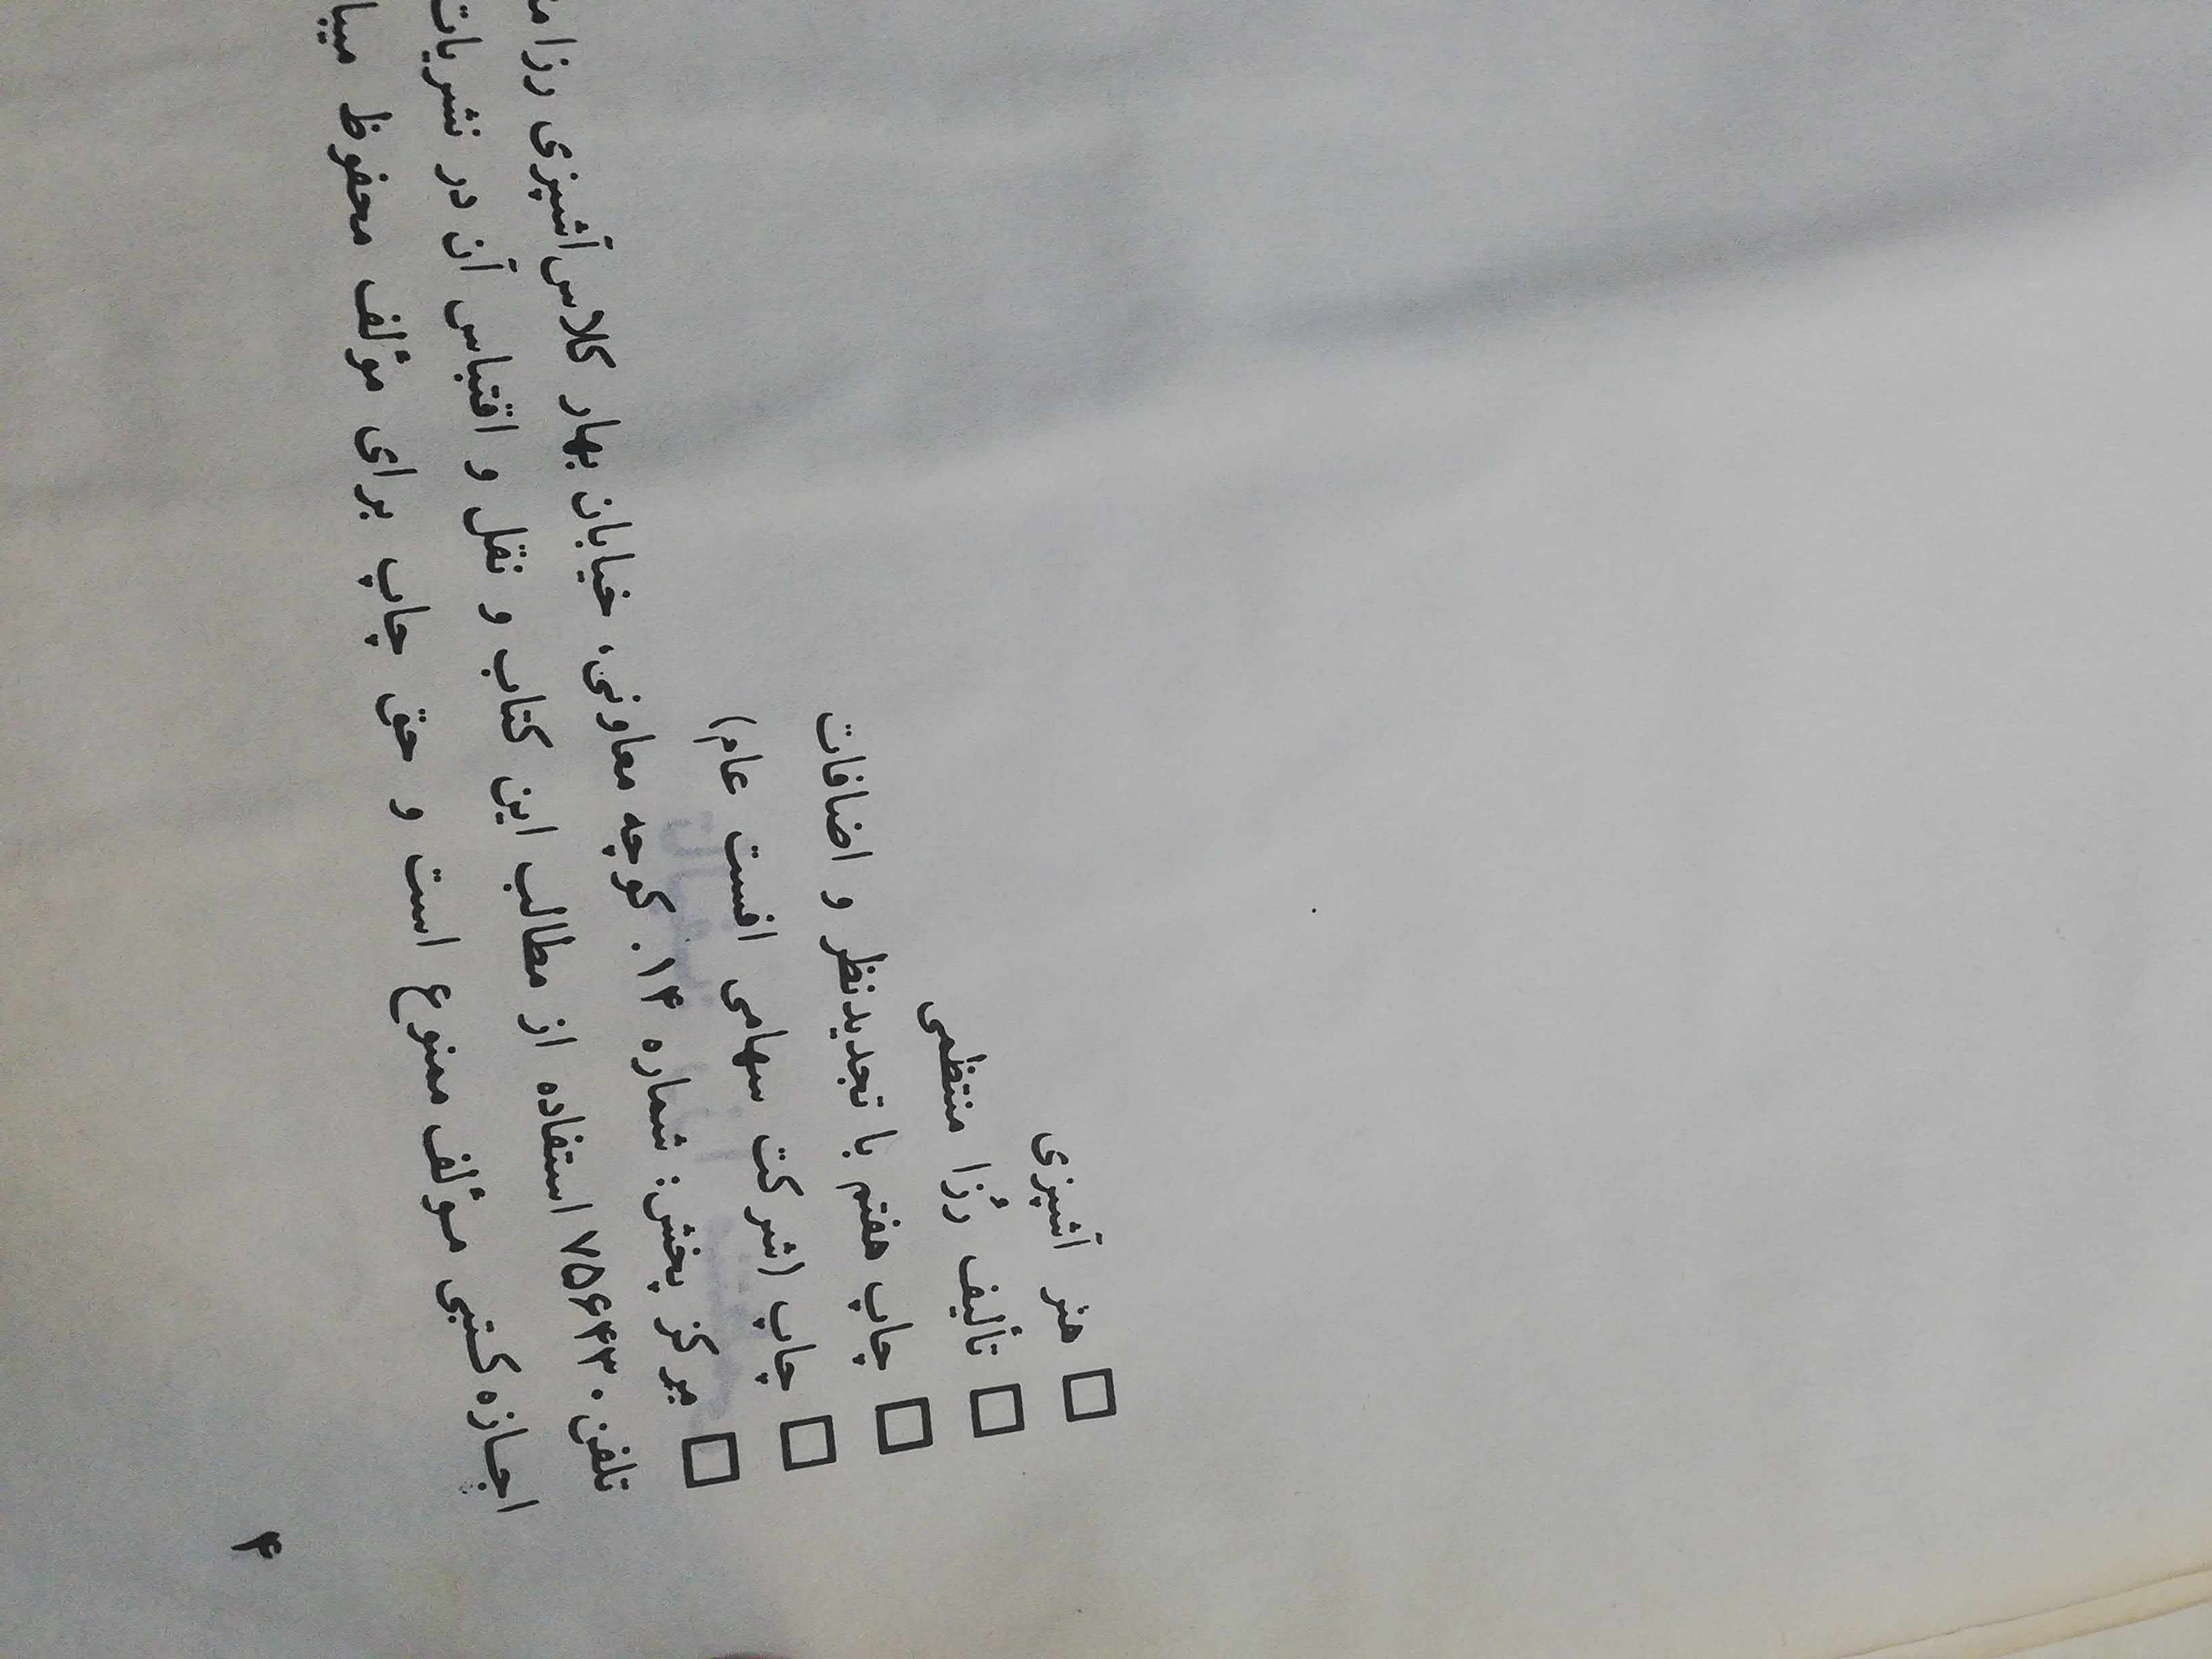 هنر آشپزی
تألیف رُزا منتظمی
چاپ هفتم با تجدیدنظر و اضافات
چاپ (شرکت سهامی افست عام)
مرکز پخش: شماره ۱۴. کوچه معاونی، خیابان بهار کلاس آشپزی رزا
تلفن ۷۵۶۴۳۰ استفاده از مطالب این کتاب و نقل و اقتباس آن در نشریات
اجازه کتبی مؤلف ممنوع است و حق چاپ برای مؤلف محفوظ
۴